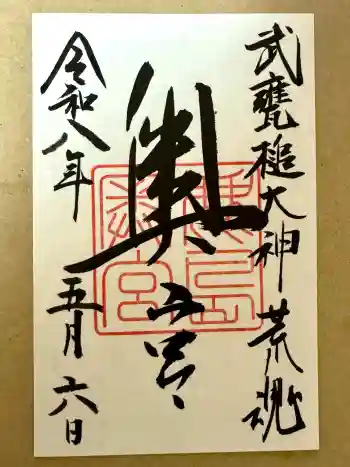 武甕槌大神 荒魂
奥宮
令和八年 五月 六日